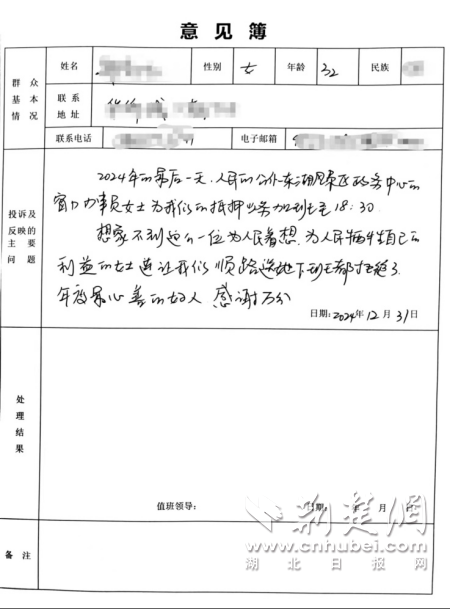 意见簿
群众基本情况
姓名
性别 女
年龄 32
民族
联系地址
联系电话
电子邮箱
投诉及反映的主要问题
2024年的最后一天,人民的公仆东湖风景区政务中心的
窗口办事员女士为我们的抵押业务加班至18:30
想象不到这么一位为人民着想,为人民牺牲自己的
利益的女士连让我们顺路送她下班都拒绝了
年度最心善的女人 感谢万分
日期:2024年12月31日
处理结果
值班领导: 日期: 年 月 日
备注
荆楚网
www.cnhubei.com
湖北日报网